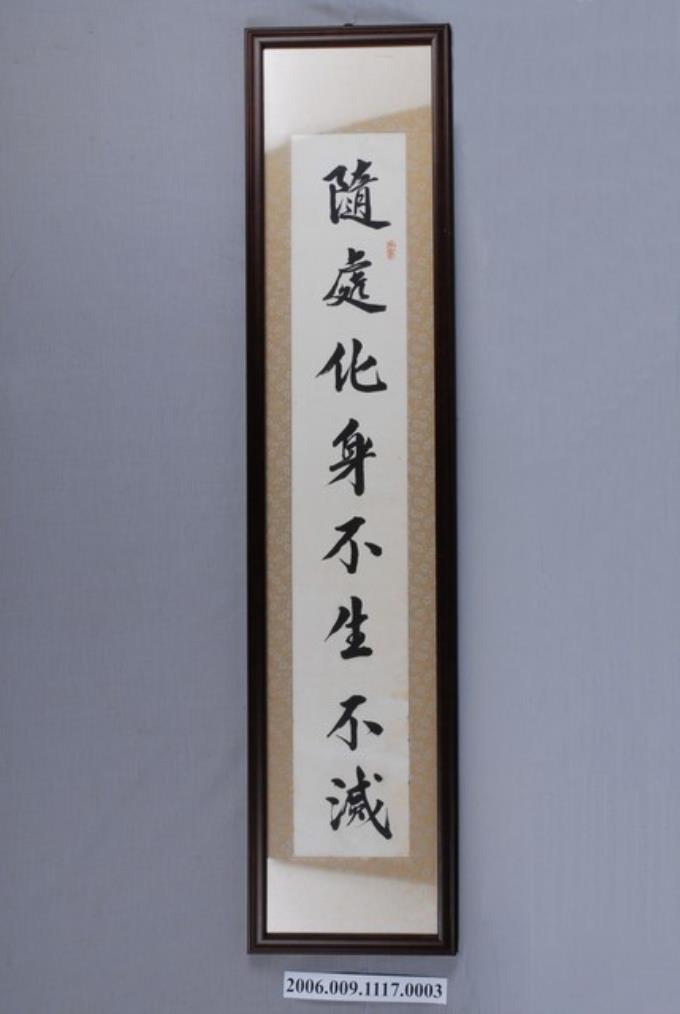 隨處化身不生不滅
2006.009.1117.0003